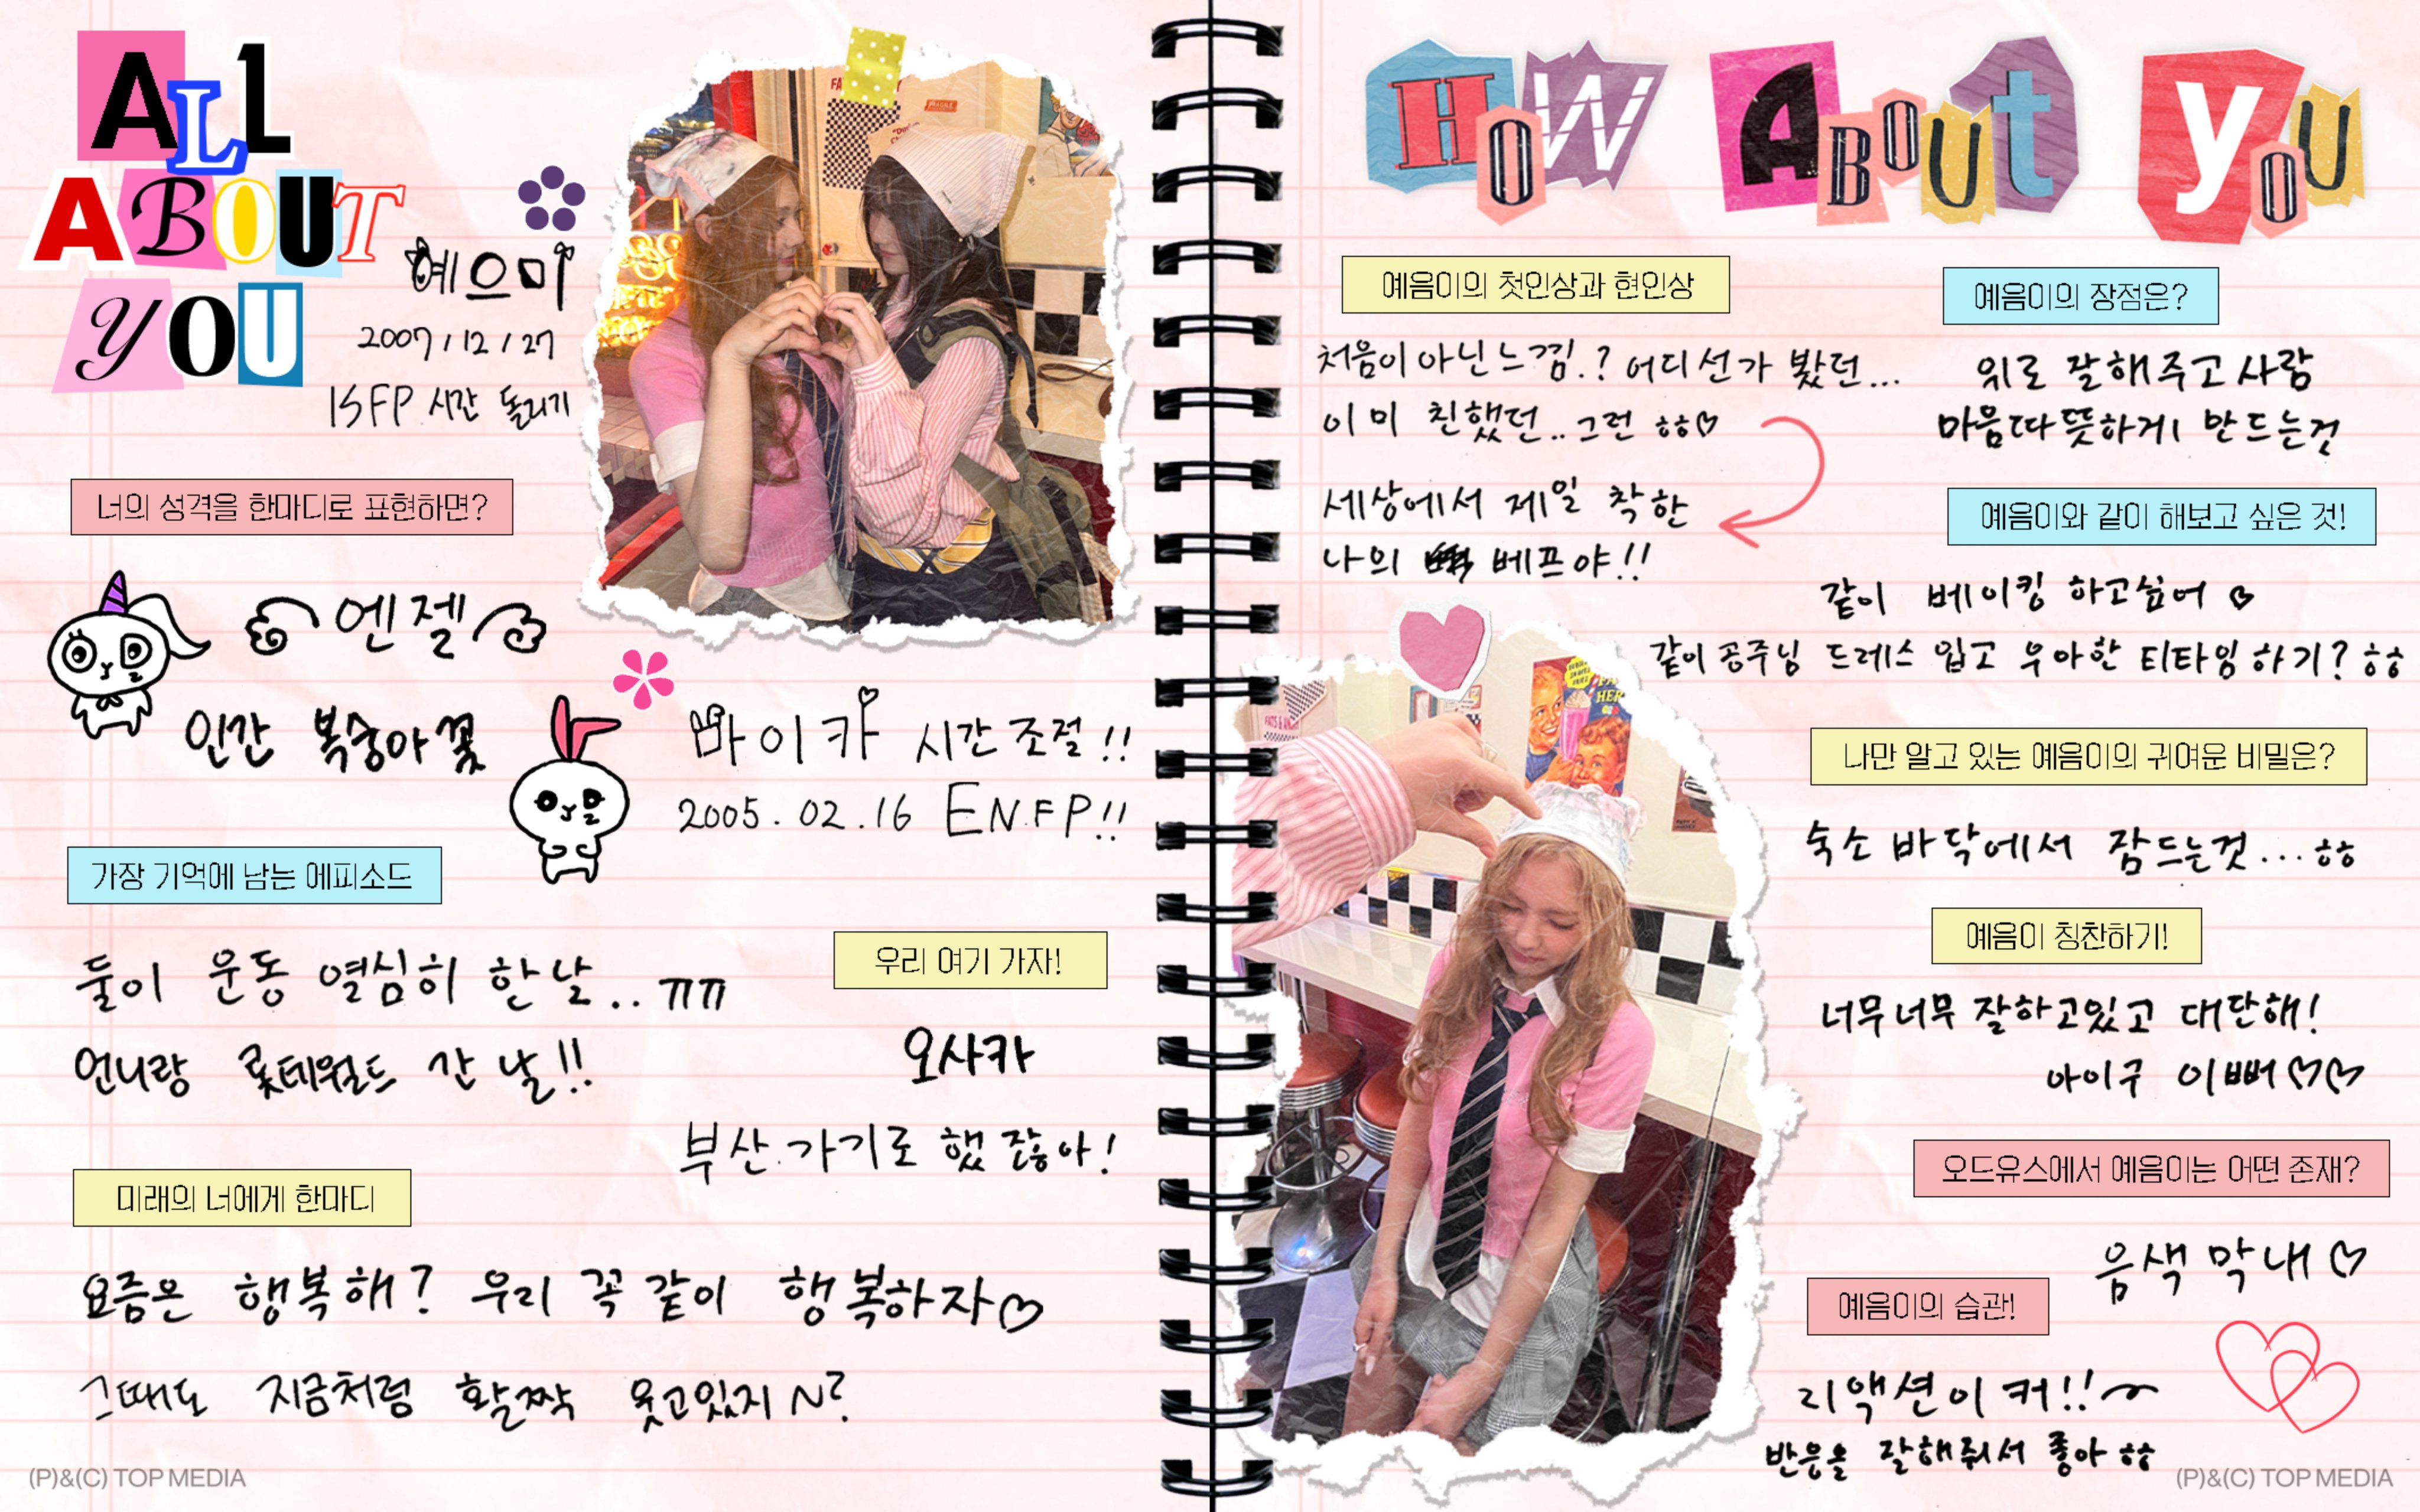 ALL
ABOUT
YOU
예으미
2007/12/27
ISFP 시간 돌리기
너의 성격을 한마디로 표현하면?
엔젤
인간 복숭아꽃
마이카 시간조절!!
2005.02.16 ENFP!!
가장 기억에 남는 에피소드
둘이 운동 열심히 한 날.. ㅠㅠ
언니랑 롯데월드 간 날!!
우리 여기 가자!
오사카
부산 가기로 했잖아!
미래의 너에게 한마디
요즘은 행복해? 우리 꼭 같이 행복하자♡
그때도 지금처럼 활짝 웃고있지~?
(P)&(C) TOP MEDIA
HOW ABOUT YOU
예음이의 첫인상과 현인상
처음이 아닌 느낌.? 어디선가 봤던...
이미 친했던.. 그런 ㅎㅎ♡
세상에서 제일 착한
나의 베프야!!
예음이의 장점은?
위로 잘해주고 사람
마음따뜻하게 만드는것
예음이와 같이 해보고 싶은 것!
같이 베이킹 하고싶어 ♡
같이 공주님 드레스 입고 우아한 티타임 하기? ㅎㅎ
나만 알고 있는 예음이의 귀여운 비밀은?
숙소 바닥에서 잠드는것... ㅎㅎ
예음이 칭찬하기!
너무너무 잘하고있고 대단해!
아이구 이뻐♡♡
오드유스에서 예음이는 어떤 존재?
음색 막내♡
예음이의 습관!
리액션이 커!!~
반응을 잘해줘서 좋아 ㅎㅎ
(P)&(C) TOP MEDIA